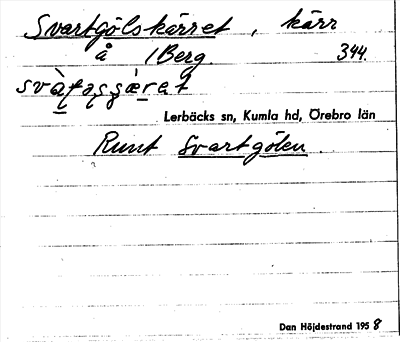 Svartgölskärret, kärr
å /Berg. 344.
Lerbäcks sn, Kumla hd, Örebro län
Runt Svartgölen.
Dan Höjdestrand 1958